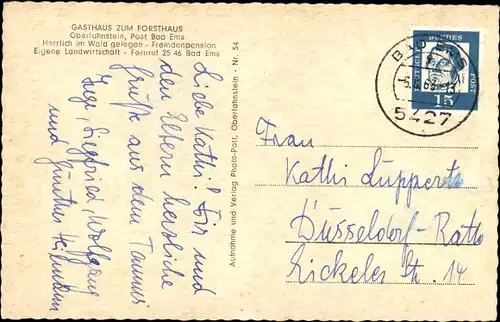 GASTHAUS ZUM FORSTHAUS
Oberlahnstein, Post Bad Ems
Herrlich im Wald gelegen - Fremdenpension
Eigene Landwirtschaft - Fernruf 25 46 Bad Ems
Liebe Kathi! Dir und
den Eltern herzliche
Grüße aus dem Taunus
Inge, Siegfried, Wolfgang
und Günther
Aufnahme und Verlag Photo-Port, Oberlahnstein - Nr. 54
BAD EMS
5427
DEUTSCHE
BUNDES
POST
15
Frau
Kathi Luppertz
Düsseldorf-Rath
Eickeler Str. 14